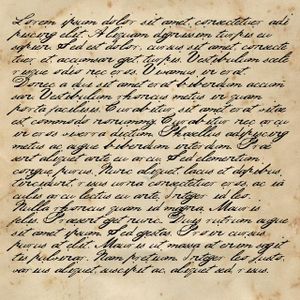 Lorem ipsum dolor sit amet, consectetuer adi
piscing elit. Aliquam dignissim turpis eu
sapien. Sed est dolor, cursus sit amet, consecte
tuer et, accumsan eget, turpis. Vestibulum scele
risque odio nec eros. Vivamus in erat.
Donec a dui sit amet erat bibendum accum
san. Vestibulum rhoncus metus quam
porta facilisis. Curabitur sit amet erat vitae
est commodo nonummy. Curabitur nec arcu
in eros viverra dictum. Phasellus adipiscing
metus ac augue bibendum interdum. Prae
sent aliquet ante eu arcu. Sed elementum,
congue purus. Nunc aliquet, lacus et dapibus
tincidunt, risus urna consectetuer eros, ac ia
culis arcu lectus eu ante. Integer id leo.
Nulla rhoncus quam id magna. Mauris in
felis. Praesent get nunc. Duis rutrum augue
sit amet ipsum. Sed gestas. Proin cursus
purus at elit. Mauris ut massa at enim sagit
tis pulvinar. Nam pretium. Integer leo justo,
varius aliquet, suscipit ac, aliquet sed, risus.